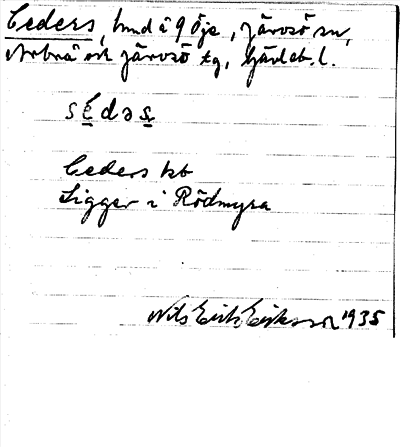 Ceders, hmd å 9 Öje, Järvsö sn,
Arbrå och Järvsö tg, Gävleb. l.
sédəs
Ceders kb
Ligger i Rödmyra
Nils Erik Eriksson 1935